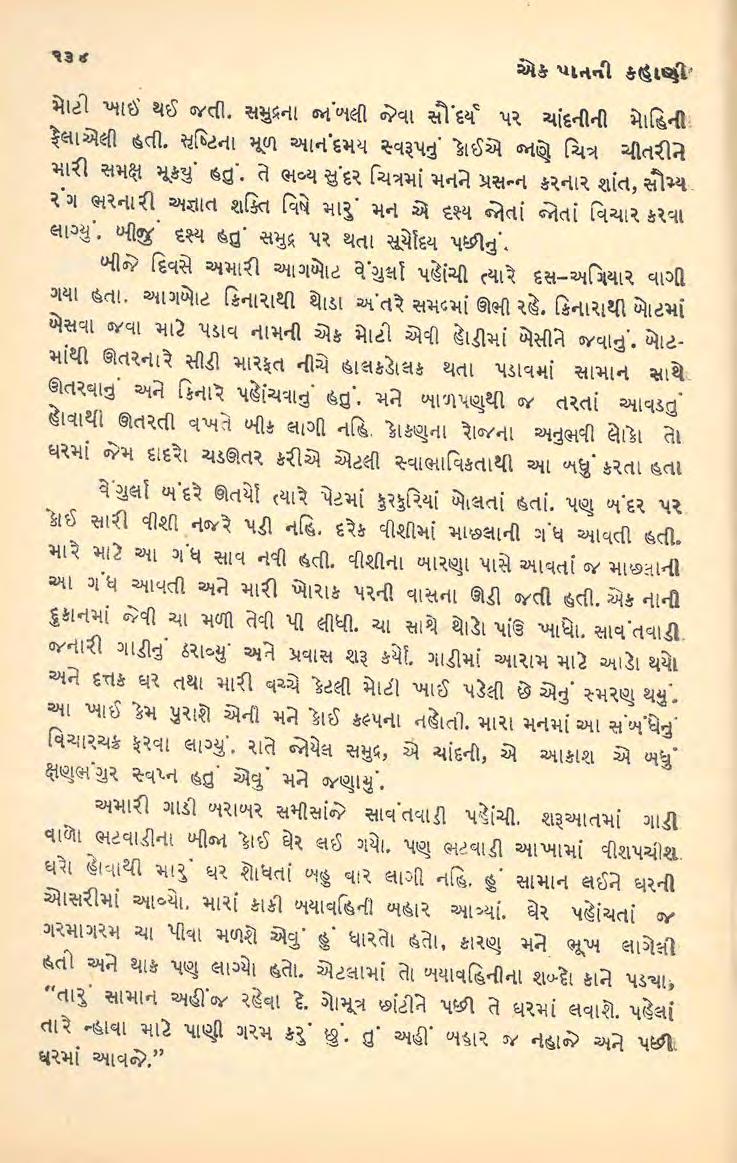 ૧૩૪
એક પાનની કહાણી
મોટી ખાઈ થઈ જતી. સમુદ્રના જાંબલી જેવા સૌંદર્ય પર ચાંદનીની મોહિની
ફેલાએલી હતી. સૃષ્ટિના મૂળ આનંદમય સ્વરૂપનું કોઈએ જાણે ચિત્ર ચીતરીને
મારી સમક્ષ મૂક્યું હતું. તે ભવ્ય સુંદર ચિત્રમાં મનને પ્રસન્ન કરનાર શાંત, સૌમ્ય
રંગ ભરનારી અજ્ઞાત શક્તિ વિષે મારું મન એ દૃશ્ય જોતાં જોતાં વિચાર કરવા
લાગ્યું. બીજું દૃશ્ય હતું સમુદ્ર પર થતા સૂર્યોદય પછીનું.
બીજે દિવસે અમારી આગબોટ વેંગુર્લા પહોંચી ત્યારે દસ-અગિયાર વાગી
ગયા હતા. આગબોટ કિનારાથી થોડા અંતરે સમુદ્રમાં ઊભી રહે. કિનારાથી બોટમાં
બેસવા જવા માટે પડાવ નામની એક મોટી એવી હોડીમાં બેસીને જવાનું. બોટ-
માંથી ઊતરનારે સીડી મારફત નીચે હાલકડોલક થતા પડાવમાં સામાન સાથે
ઊતરવાનું અને કિનારે પહોંચવાનું હતું. મને બાળપણથી જ તરતાં આવડતું
હોવાથી ઊતરતી વખતે બીક લાગી નહિ. કોકણના રોજના અનુભવી લોકો તો
ઘરમાં જેમ દાદરો ચડઊતર કરીએ એટલી સ્વાભાવિકતાથી આ બધું કરતા હતા
વેંગુર્લા બંદરે ઊતર્યો ત્યારે પેટમાં કુરકુરિયાં બોલતાં હતાં. પણ બંદર પર
કોઈ સારી વીશી નજરે પડી નહિ. દરેક વીશીમાં માછલાની ગંધ આવતી હતી.
મારે માટે આ ગંધ સાવ નવી હતી. વીશીના બારણા પાસે આવતાં જ માછલાની
આ ગંધ આવતી અને મારી ખોરાક પરની વાસના ઊડી જતી હતી. એક નાની
દુકાનમાં જેવી ચા મળી તેવી પી લીધી. ચા સાથે થોડો પાંઉ ખાધો. સાવંતવાડી
જનારી ગાડીનું ઠરાવ્યું અને પ્રવાસ શરૂ કર્યો. ગાડીમાં આરામ માટે આડો થયો
અને દત્તક ઘર તથા મારી વચ્ચે કેટલી મોટી ખાઈ પડેલી છે એનું સ્મરણ થયું.
આ ખાઈ કેમ પુરાશે એની મને કોઈ કલ્પના નહોતી. મારા મનમાં આ સંબંધેનું
વિચારચક્ર ફરવા લાગ્યું. રાતે જોયેલ સમુદ્ર, એ ચાંદની, એ આકાશ એ બધું
ક્ષણભંગુર સ્વપ્ન હતું એવું મને જણાયું.
અમારી ગાડી બરાબર સમીસાંજે સાવંતવાડી પહોંચી. શરૂઆતમાં ગાડી
વાળો ભટવાડીના બીજા કોઈ ઘેર લઈ ગયો. પણ ભટવાડી આખામાં વીશપચીશ
ઘરો હોવાથી મારું ઘર શોધતાં બહુ વાર લાગી નહિ. હું સામાન લઈને ઘરની
ઓસરીમાં આવ્યો. મારાં કાકી બયાવહિની બહાર આવ્યાં. ઘેર પહોંચતાં જ
ગરમાગરમ ચા પીવા મળશે એવું હું ધારતો હતો, કારણ મને ભૂખ લાગેલી
હતી અને થાક પણ લાગ્યો હતો. એટલામાં તો બયાવહિનીના શબ્દો કાને પડ્યા,
“તારું સામાન અહીંજ રહેવા દે. ગોમૂત્ર છાંટીને પછી તે ઘરમાં લવાશે. પહેલાં
તારે ન્હાવા માટે પાણી ગરમ કરું છું. તું અહીં બહાર જ નહાજે અને પછી
ઘરમાં આવજે.”